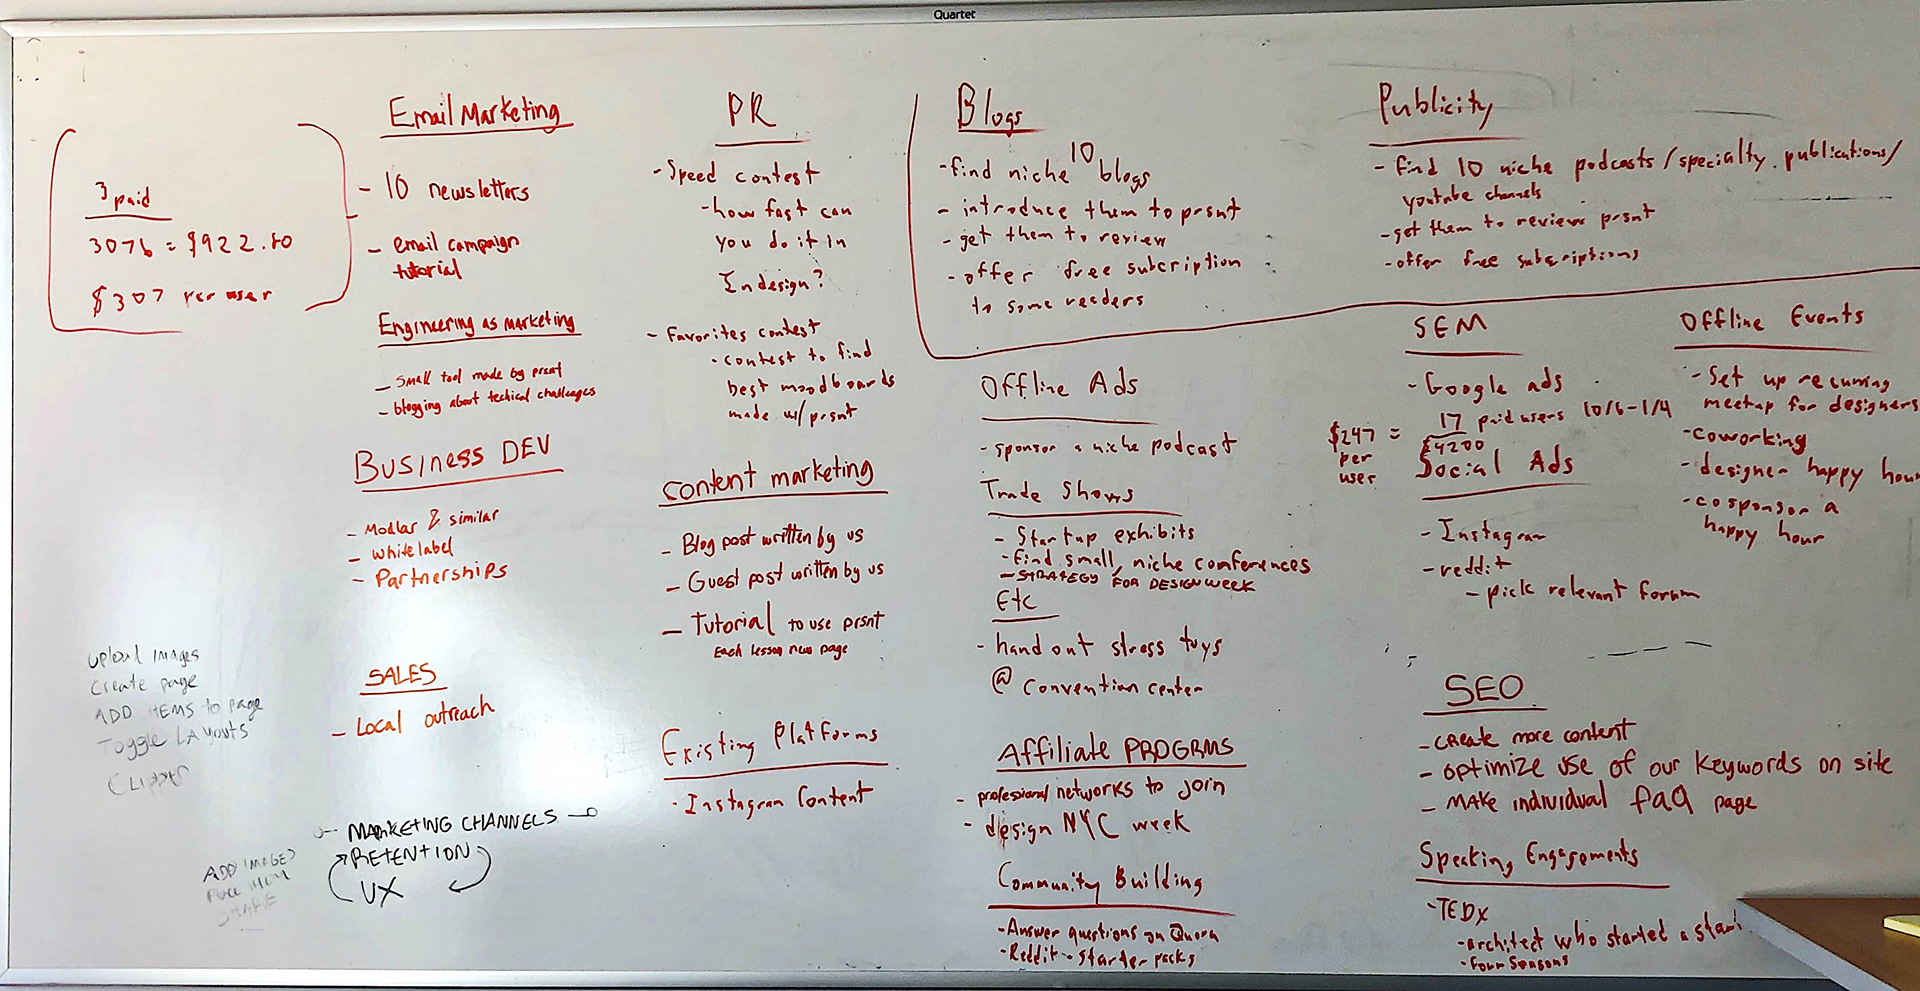 Quartet
3 paid
3076 = $922.80
$307 per user
Email Marketing
- 10 newsletters
- email campaign
tutorial
Engineering as marketing
- Small tool made by prsnt
- blogging about techical challenges
Business DEV
- Modlar & similar
- white label
- Partnerships
SALES
- Local outreach
Upload images
Create page
ADD ITEMS to page
Toggle LAYOUTS
CLIPPER
- MARKETING CHANNELS
RETENTION
UX
ADD IMAGES
PR
- Speed contest
- how fast can
you do it in
Indesign?
- Favorites contest
- contest to find
best moodboards
made w/ prsnt
Content marketing
- Blog post written by us
- Guest post written by us
- Tutorial to use prsnt
Each lesson new page
Existing Platforms
- Instagram Content
Blogs
- find niche 10 blogs
- introduce them to prsnt
- get them to review
- offer free subcription
to some readers
Publicity
- find 10 niche podcasts/specialty publications/
youtube channels
- get them to review prsnt
- offer free subscriptions
Offline Ads
- sponsor a niche podcast
Trade Shows
- Startup exhibits
- find small, niche conferences
- STRATEGY FOR DESIGN WEEK
Etc
- hand out stress toys
@ convention center
Affiliate PROGRMS
- professional networks to join
- design NYC week
Community Building
- Answer questions on Quora
- Reddit - starter packs
SEM
- Google ads
17 paid users 10/6-1/4
$4200
$247 =
per
user
Social Ads
- Instagram
- reddit
- pick relevant forum
Offline Events
- Set up recurring
meetup for designers
- coworking
- designer happy hour
- cosponsor a
happy hour
SEO
- create more content
- optimize use of our keywords on site
- MAKE individual faq page
Speaking Engagements
- TEDx
- architect who started a start
- Four Seasons